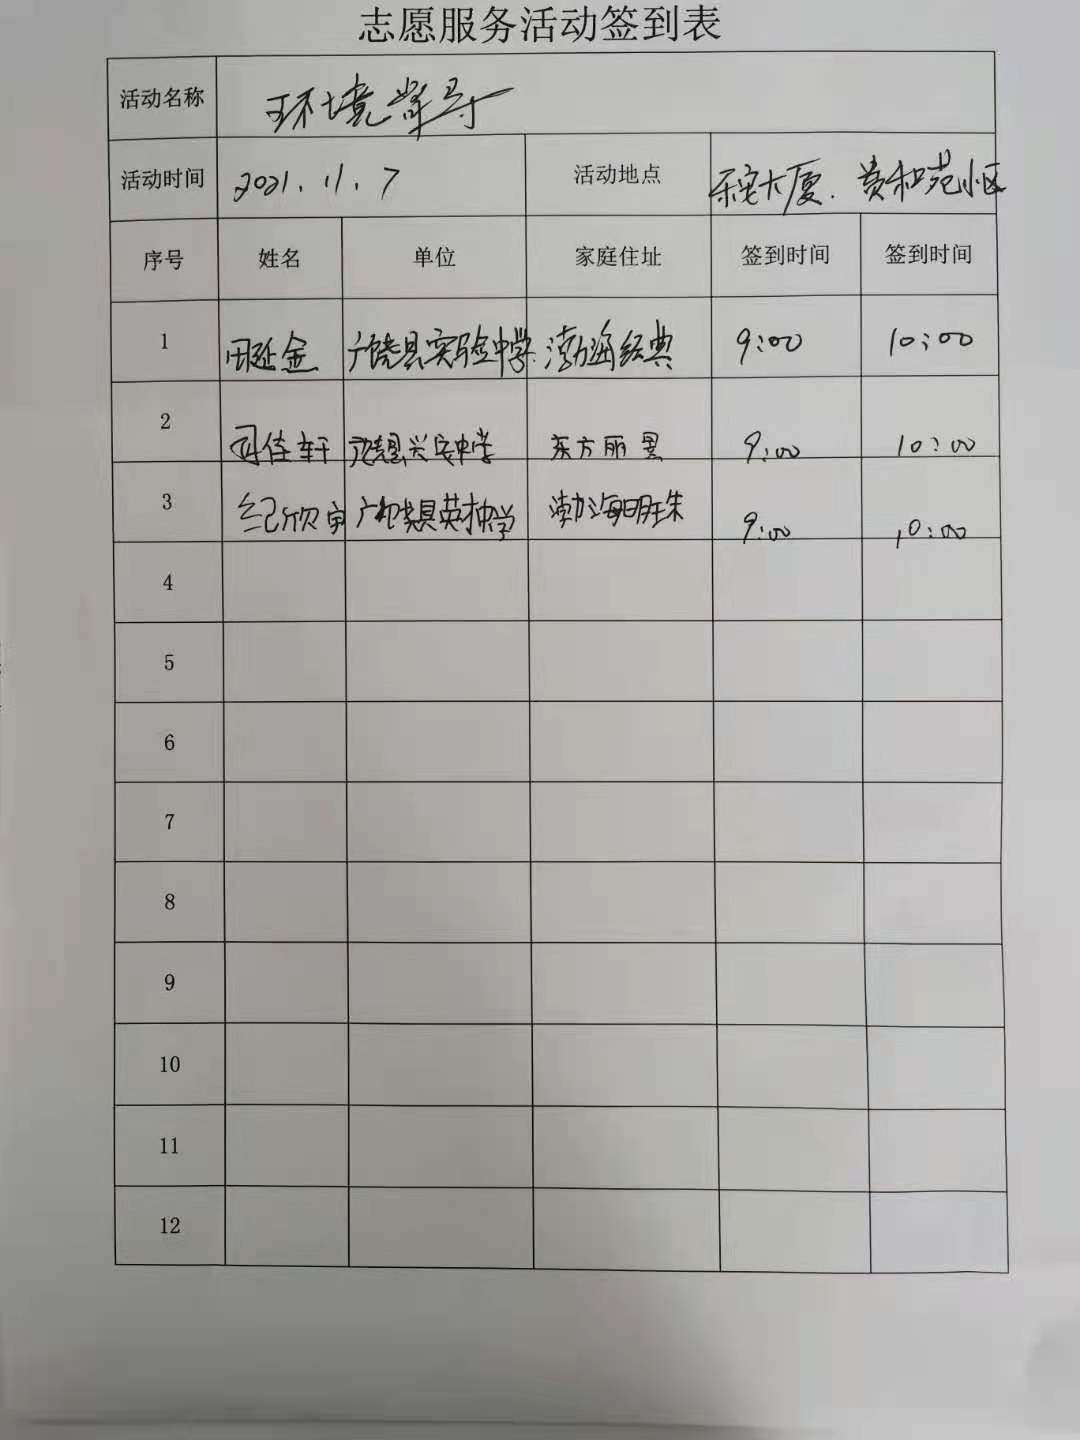 志愿服务活动签到表
活动名称 环境督导
活动时间 2021.11.7 活动地点 大厦.贵和苑小区
序号 姓名 单位 家庭住址 签到时间 签到时间
1 田延金 广饶县实验中学 渤海经典 9:00 10:00
2 佳轩 东方丽景 9:00 10:00
3 纪欣 广饶县英才中学 渤海明珠 9:00 10:00
4
5
6
7
8
9
10
11
12